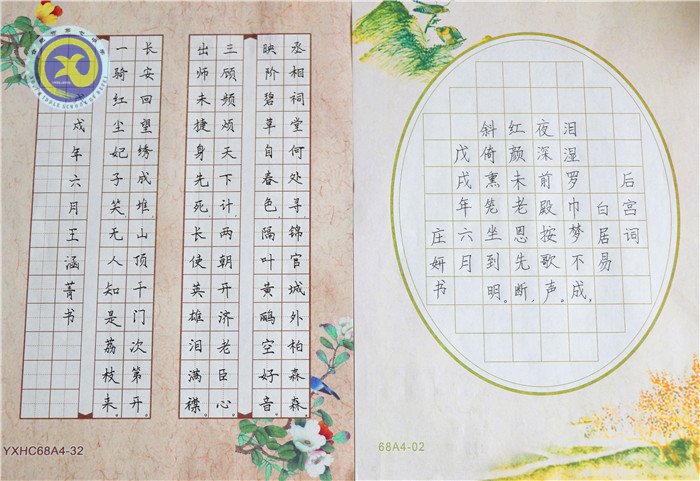 丞相祠堂何处寻锦官城外柏森森。
映阶碧草自春色隔叶黄鹂空好音。
三顾频烦天下计两朝开济老臣心
出师未捷身先死长使英雄泪满襟。
长安回望绣成堆山顶千门次第开。
一骑红尘妃子笑无人知是荔枝来。
戌年六月王涵菁书
YXHC68A4-32
后宫词
白居易
泪湿罗巾梦不成,
夜深前殿按歌声。
红颜未老恩先断,
斜倚熏笼坐到明。
戊戌年六月
庄妍书
68A4-02